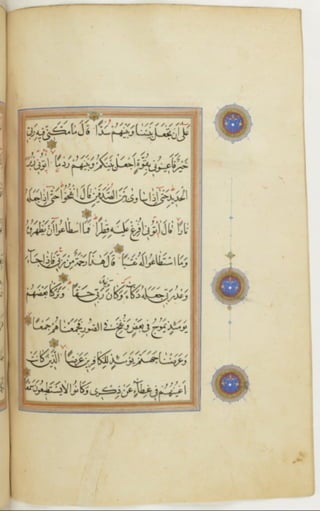 عَلَىٰ أَن تَجْعَلَ بَيْنَنَا وَبَيْنَهُمْ سَدًّا قَالَ مَا مَكَّنِّي فِيهِ رَبِّي
خَيْرٌ فَأَعِينُونِي بِقُوَّةٍ أَجْعَلْ بَيْنَكُمْ وَبَيْنَهُمْ رَدْمًا آتُونِي زُبَرَ
الْحَدِيدِ حَتَّىٰ إِذَا سَاوَىٰ بَيْنَ الصَّدَفَيْنِ قَالَ انفُخُوا حَتَّىٰ إِذَا جَعَلَهُ
نَارًا قَالَ آتُونِي أُفْرِغْ عَلَيْهِ قِطْرًا فَمَا اسْطَاعُوا أَن يَظْهَرُوهُ
وَمَا اسْتَطَاعُوا لَهُ نَقْبًا قَالَ هَٰذَا رَحْمَةٌ مِن رَبِّي فَإِذَا جَاءَ
وَعْدُ رَبِّي جَعَلَهُ دَكَّاءَ وَكَانَ وَعْدُ رَبِّي حَقًّا وَتَرَكْنَا بَعْضَهُمْ
يَوْمَئِذٍ يَمُوجُ فِي بَعْضٍ وَنُفِخَ فِي الصُّورِ فَجَمَعْنَاهُمْ جَمْعًا
وَعَرَضْنَا جَهَنَّمَ يَوْمَئِذٍ لِلْكَافِرِينَ عَرْضًا الَّذِينَ كَانَتْ
أَعْيُنُهُمْ فِي غِطَاءٍ عَن ذِكْرِي وَكَانُوا لَا يَسْتَطِيعُونَ سَمْعًا